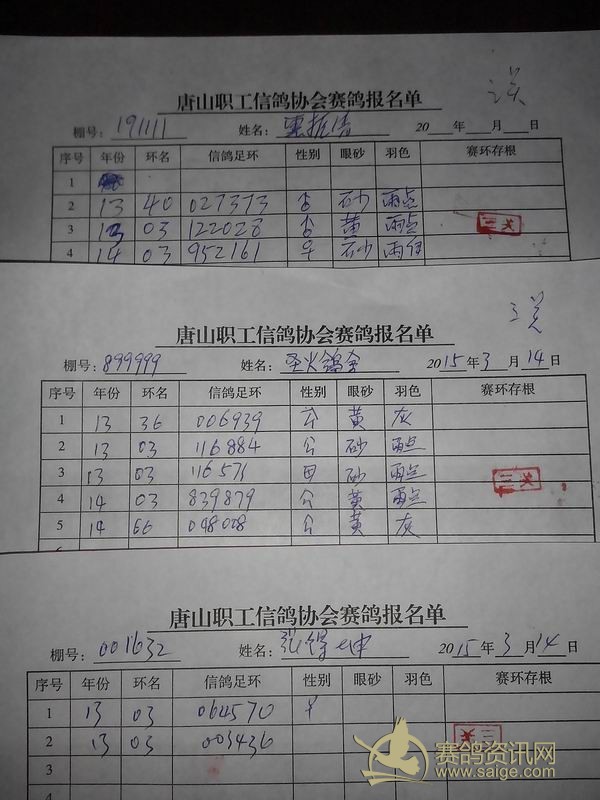 唐山职工信鸽协会赛鸽报名单
棚号: 191111 姓名: 20 年 月 日
序号 年份 环名 信鸽足环 性别 眼砂 羽色 赛环存根
1
2 13 40 027373 砂 雨点
3 13 03 122028 黄 雨点 三关
4 14 03 952161 砂 雨
唐山职工信鸽协会赛鸽报名单 三关
棚号: 899999 姓名: 圣火鸽舍 2015年3月14日
序号 年份 环名 信鸽足环 性别 眼砂 羽色 赛环存根
1 13 36 006939 公 黄 灰
2 13 03 116884 公 砂 雨点
3 13 03 116571 母 砂 雨点 三关
4 14 03 839879 公 黄 雨点
5 14 66 048008 公 黄 灰
唐山职工信鸽协会赛鸽报名单
棚号: 001632 姓名: 张得坤 2015年3月14日
序号 年份 环名 信鸽足环 性别 眼砂 羽色 赛环存根
1 13 03 064570
2 13 03 003436 三关
3
赛鸽资讯网
www.saige.com